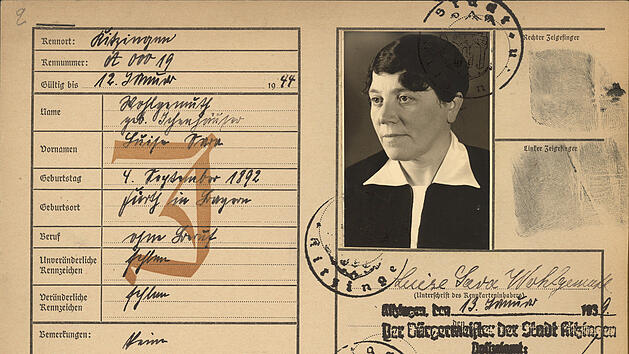 2
Kennort: Kitzingen
Kennnummer: A 00019
Gültig bis 12. Januar 1944
Name Wohlgemuth
geb. Ichenhäuser
Vornamen Luise Sara
Geburtstag 4. September 1892
Geburtsort Fürth in Bayern
Beruf ohne Beruf
Unveränderliche Kennzeichen fehlen
Veränderliche Kennzeichen fehlen
Bemerkungen: Keine
J
Stadt- u.
Rechter Zeigefinger
Linker Zeigefinger
Kitzing
Luise Sara Wohlgemuth
(Unterschrift des Kennkarteninhabers)
Kitzingen, den 13. Januar 1939
Der Bürgermeister der Stadt Kitzingen